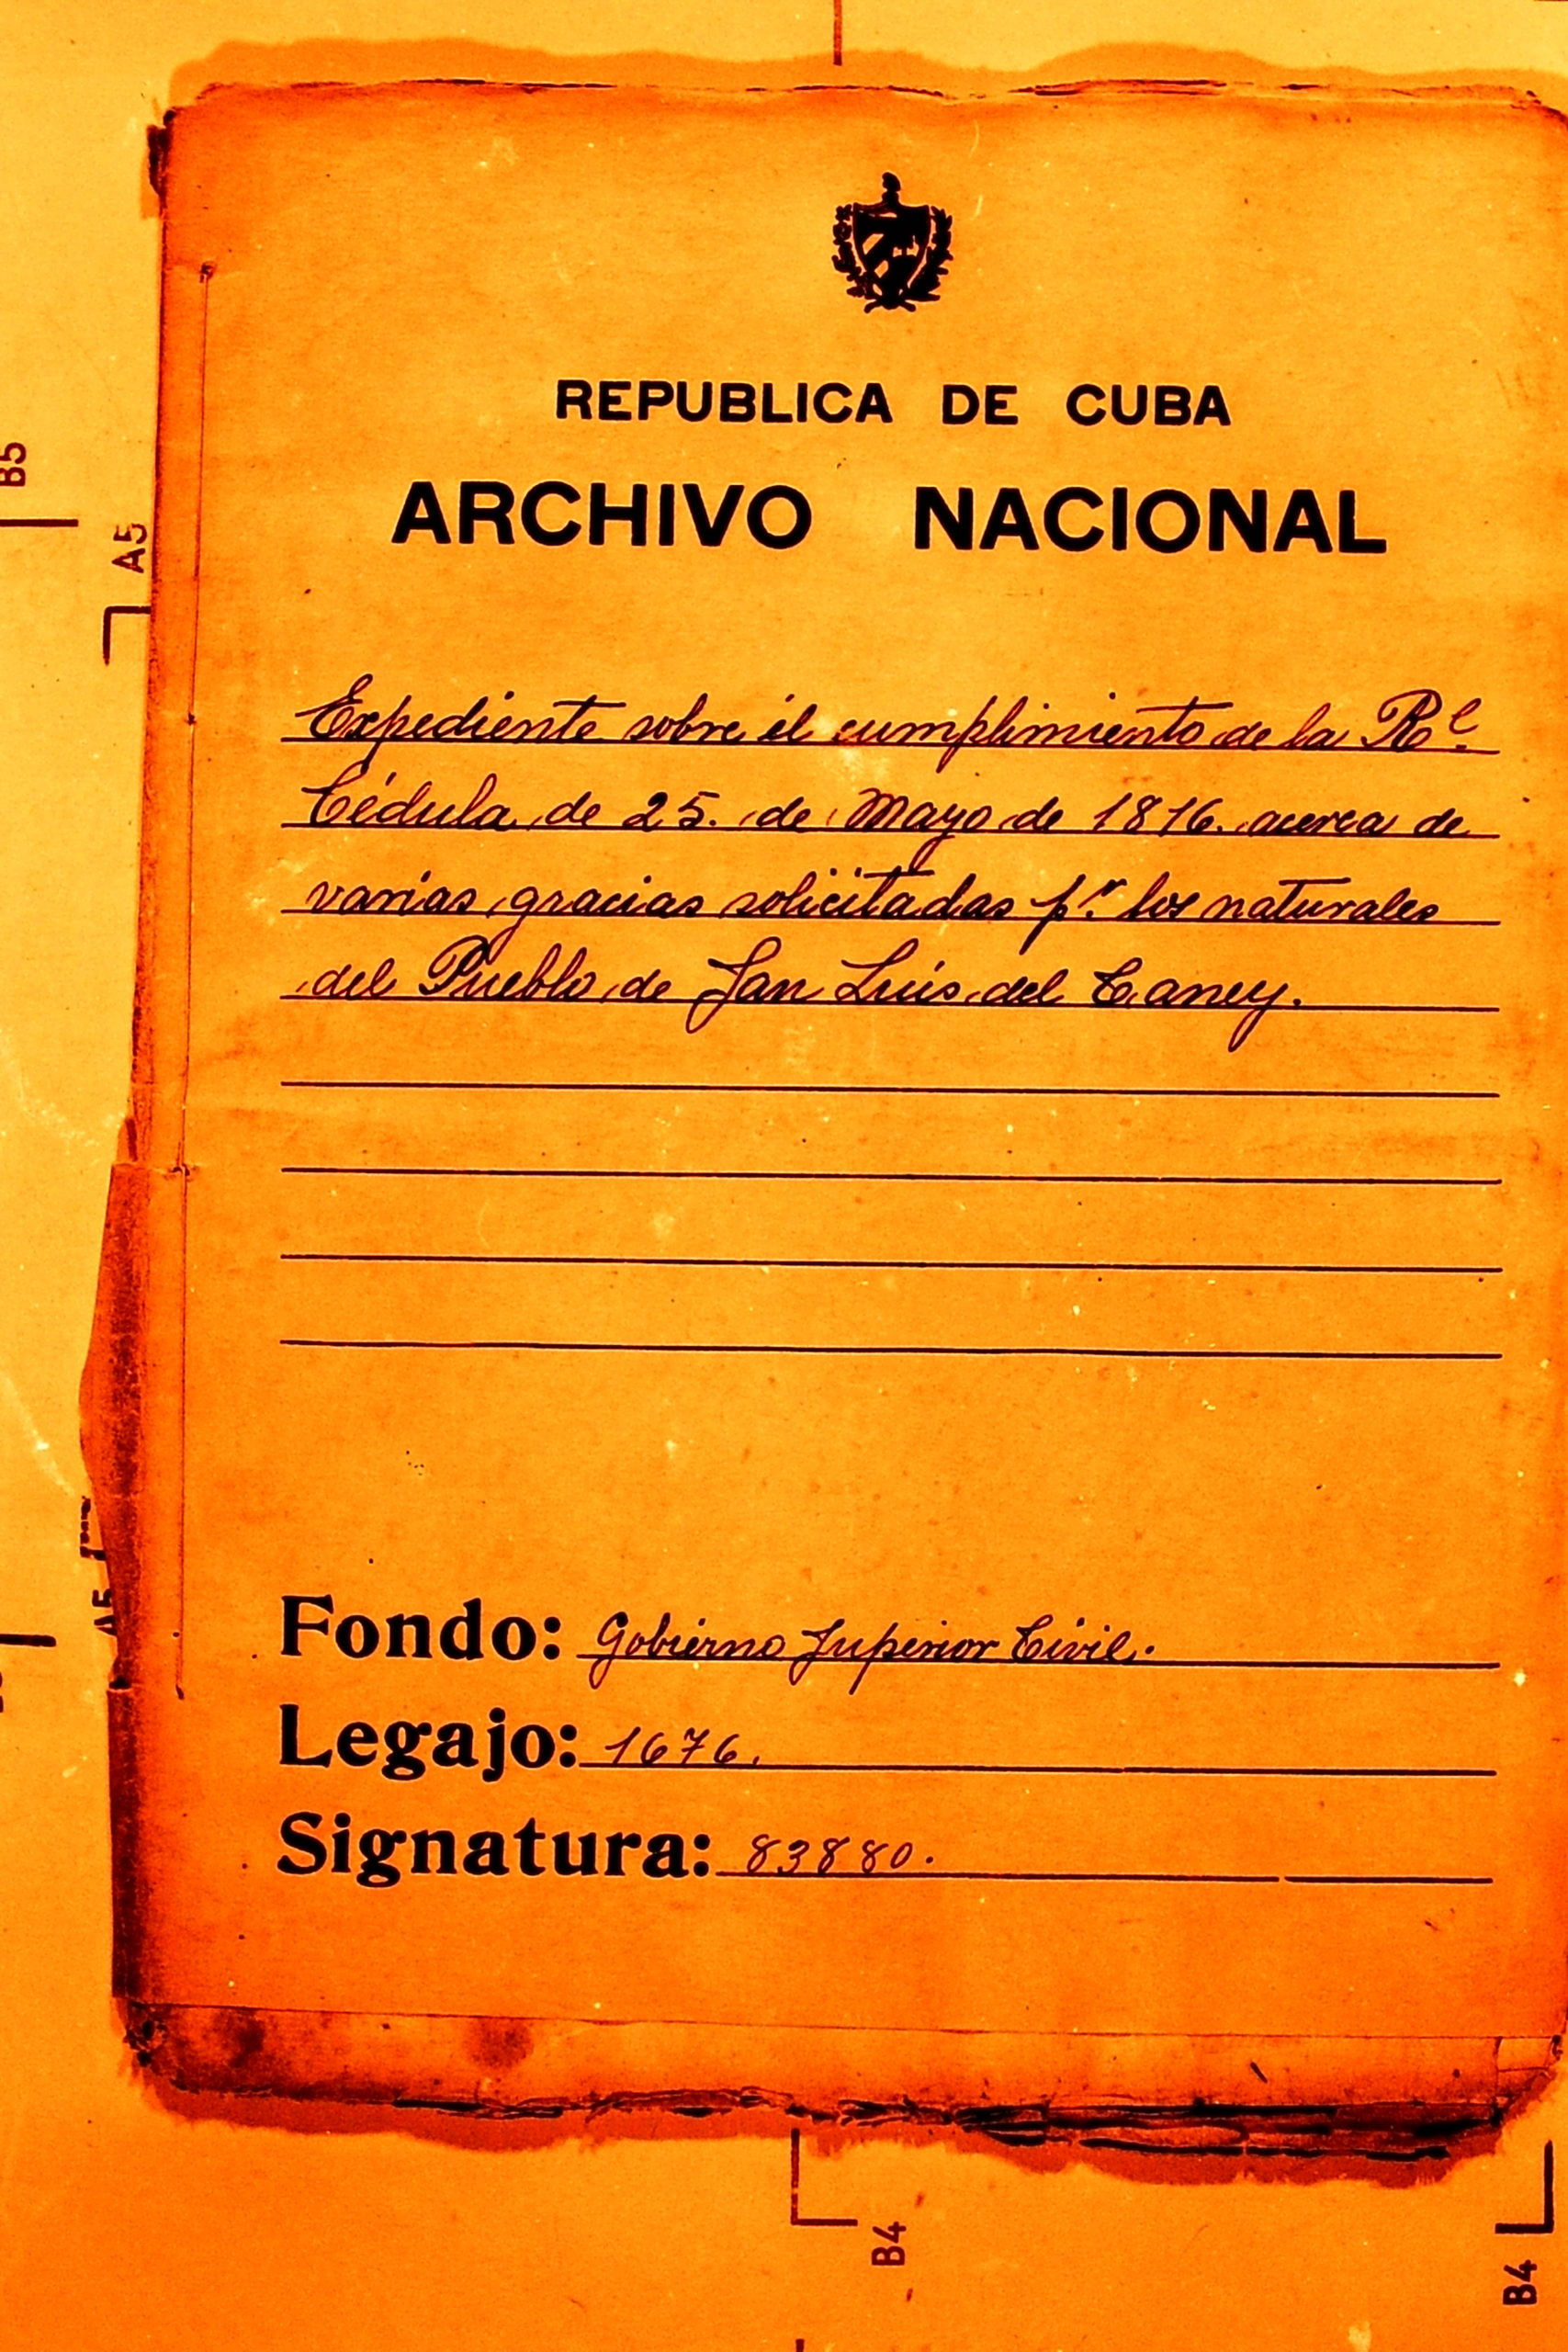 REPUBLICA DE CUBA
ARCHIVO NACIONAL
Expediente sobre el cumplimiento de la Rl.
Cédula de 25. de Mayo de 1816. acerca de
varias gracias solicitadas pr. los naturales
del Pueblo de San Luis del Caney.
Fondo: Gobierno Superior Civil.
Legajo: 1676.
Signatura: 83880.
B5
A5
A5
B4
B4